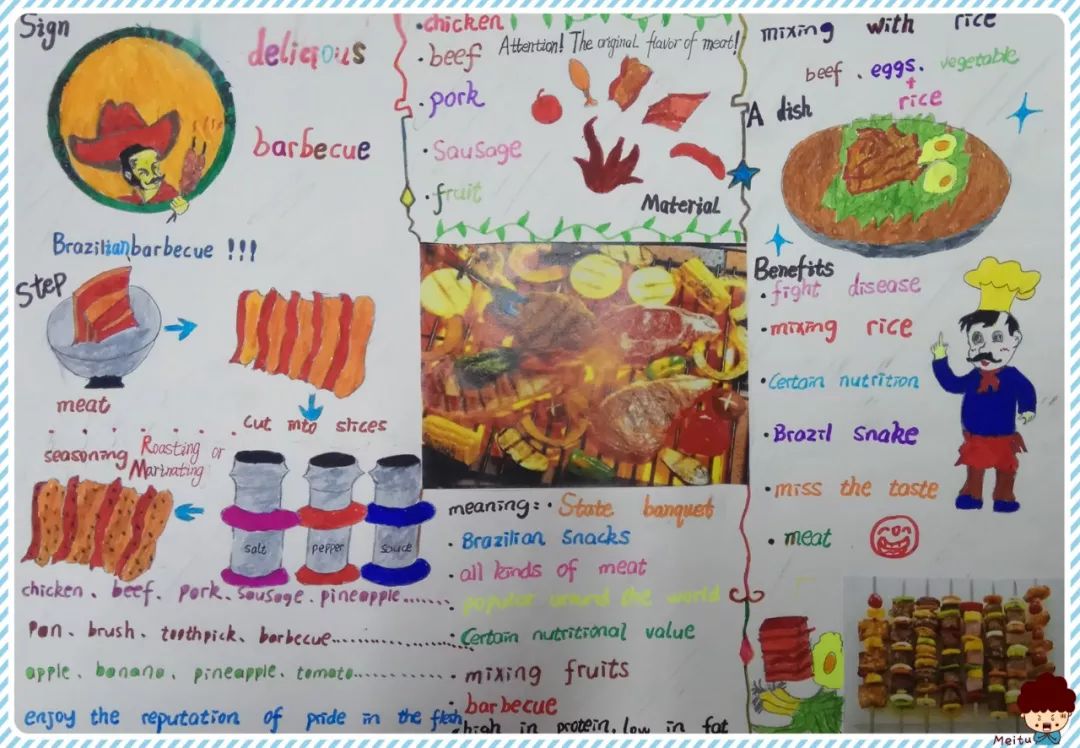 Sign
delicious
barbecue
Brazilian barbecue !!!
Step
meat
cut into slices
seasoning Roasting or
Marinating
salt
pepper
sauce
chicken、beef、pork、sausage、pineapple.......
Pan、brush、toothpick、barbecue...............
apple、banana、pineapple、tomato............
enjoy the reputation of pride in the flesh
·chicken
·beef
·pork
·Sausage
·fruit
Attention! The original flavor of meat!
Material
meaning:·State banquet
·Brazilian Snacks
·all kinds of meat
·popular around the world
·Certain nutritional value
·mixing fruits
·barbecue
high in protein, low in fat
mixing with rice
beef、eggs、vegetable
+
rice
A dish
Benefits
·fight disease
·mixing rice
·Certain nutrition
·Brazil snake
·miss the taste
·meat
Meitu